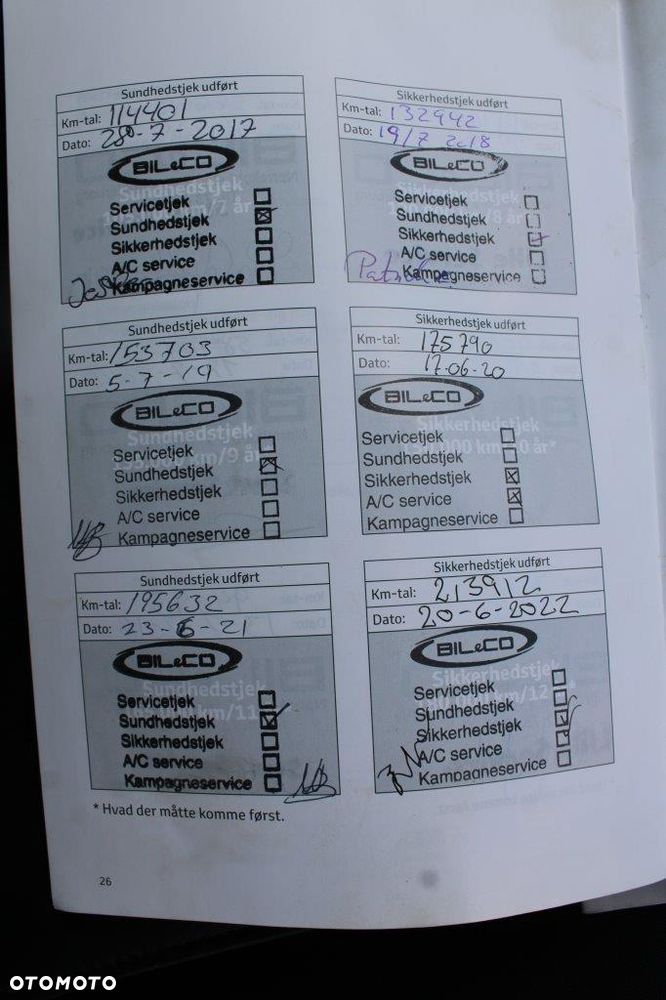 Sundhedstjek udført
Km-tal: 114401
Dato: 28-7-2017
BILeCO
Servicetjek
Sundhedstjek
Sikkerhedstjek
A/C service
Kampagneservice
Sikkerhedstjek udført
Km-tal: 132942
Dato: 19/7 2018
BILeCO
Servicetjek
Sundhedstjek
Sikkerhedstjek
A/C service
Kampagneservice
Sundhedstjek udført
Km-tal: 153703
Dato: 5-7-19
BILeCO
Servicetjek
Sundhedstjek
Sikkerhedstjek
A/C service
Kampagneservice
Sikkerhedstjek udført
Km-tal: 175790
Dato: 17.06.20
BILeCO
Servicetjek
Sundhedstjek
Sikkerhedstjek
A/C service
Kampagneservice
Sundhedstjek udført
Km-tal: 195632
Dato: 23-6-21
BILeCO
Servicetjek
Sundhedstjek
Sikkerhedstjek
A/C service
Kampagneservice
Sikkerhedstjek udført
Km-tal: 213912
Dato: 20-6-2022
BILeCO
Servicetjek
Sundhedstjek
Sikkerhedstjek
A/C service
Kampagneservice
* Hvad der måtte komme først.
26
OTOMOTO